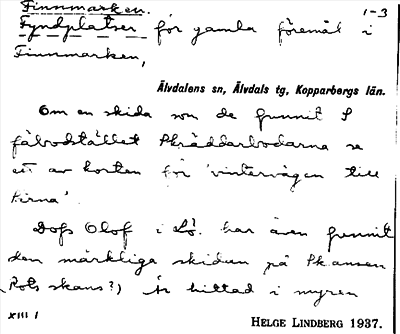 Finnmarken. 1-3
Fyndplatser för gamla föremål i
Finnmarken,
Älvdalens sn, Älvdals tg, Kopparbergs län.
Om en skida som de funnit i
fäbodstället Skräddarbodarna se
ett av korten för 'vintervägen till
Kirna'.
Dofs Olof i har även funnit
den märkliga skidan på Skansen
Rots skans?) Är hittad i myren
XIII 1 HELGE LINDBERG 1937.